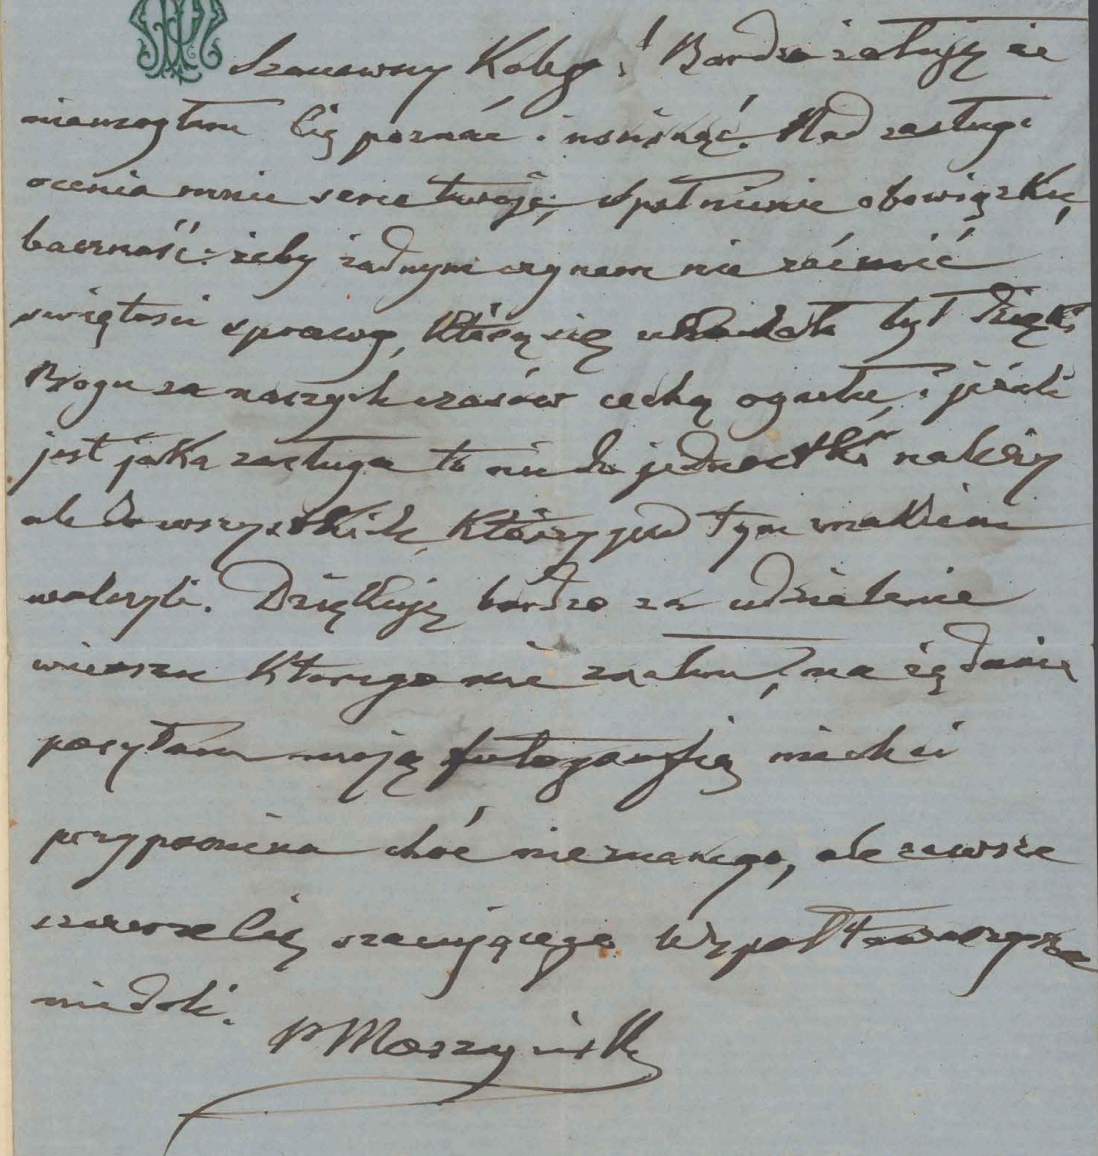 Szanowny Kolego! Bardzo żałuję że
niemogłem Cię poznać i uścisnąć. Nad zasługi
ocenia mnie serce twoje; spełnienie obowiązku,
baczność: żeby żadnym czynem nie zaćmić
świętości sprawy, którą się był Dzięki
Bogu za naszych czasów cechą ogółu, i jeżeli
jest jaka zasługa to nie do jednostki należy
ale do wszystkich, którzy pod tym znakiem
walczyli. Dziękuję bardzo za udzielenie
wiersza którego nie znałem, na żądanie
posyłam moją fotografię niech ci
przypomina choć nieznanego, ale zawsze
szczerze Cię szanującego Współtowarzysza
niedoli.
P Moszyński